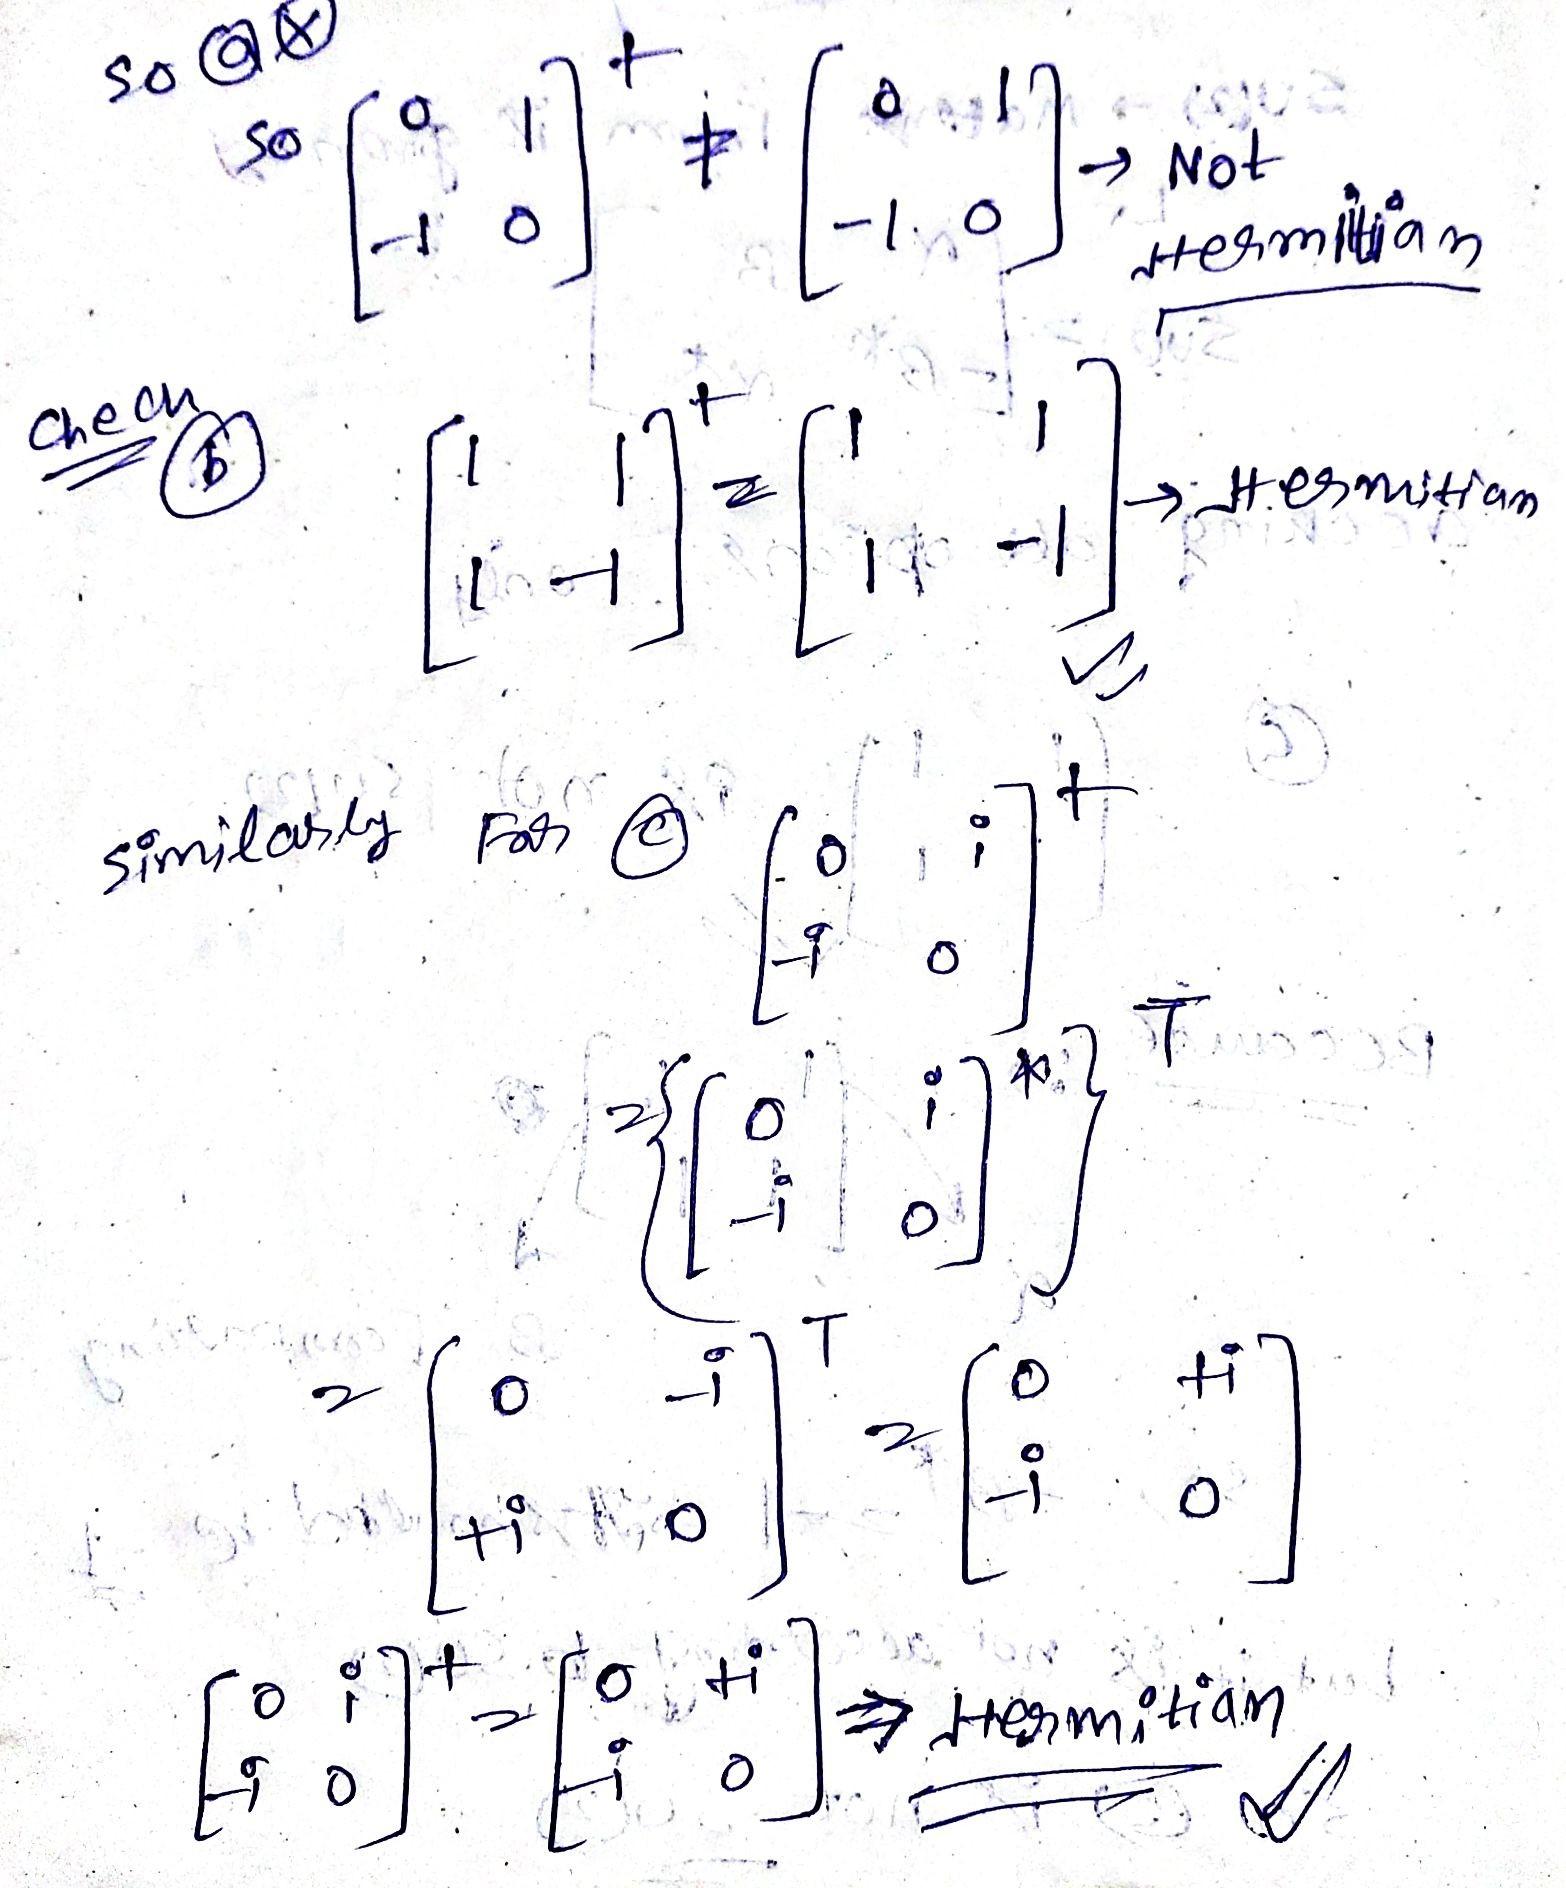 so ⓐ ⓧ
so [0 1; -1 0]^† ≠ [0 1; -1 0] → Not Hermitian
Check ⓑ [1 1; 1 -1]^† = [1 1; 1 -1] → Hermitian ✓✓
similarly For ⓒ [0 i; -i 0]^†
= {[0 i; -i 0]^*}^T
= [0 -i; +i 0]^T = [0 +i; -i 0]
[0 i; -i 0]^† = [0 +i; -i 0] ⇒ Hermitian ✓